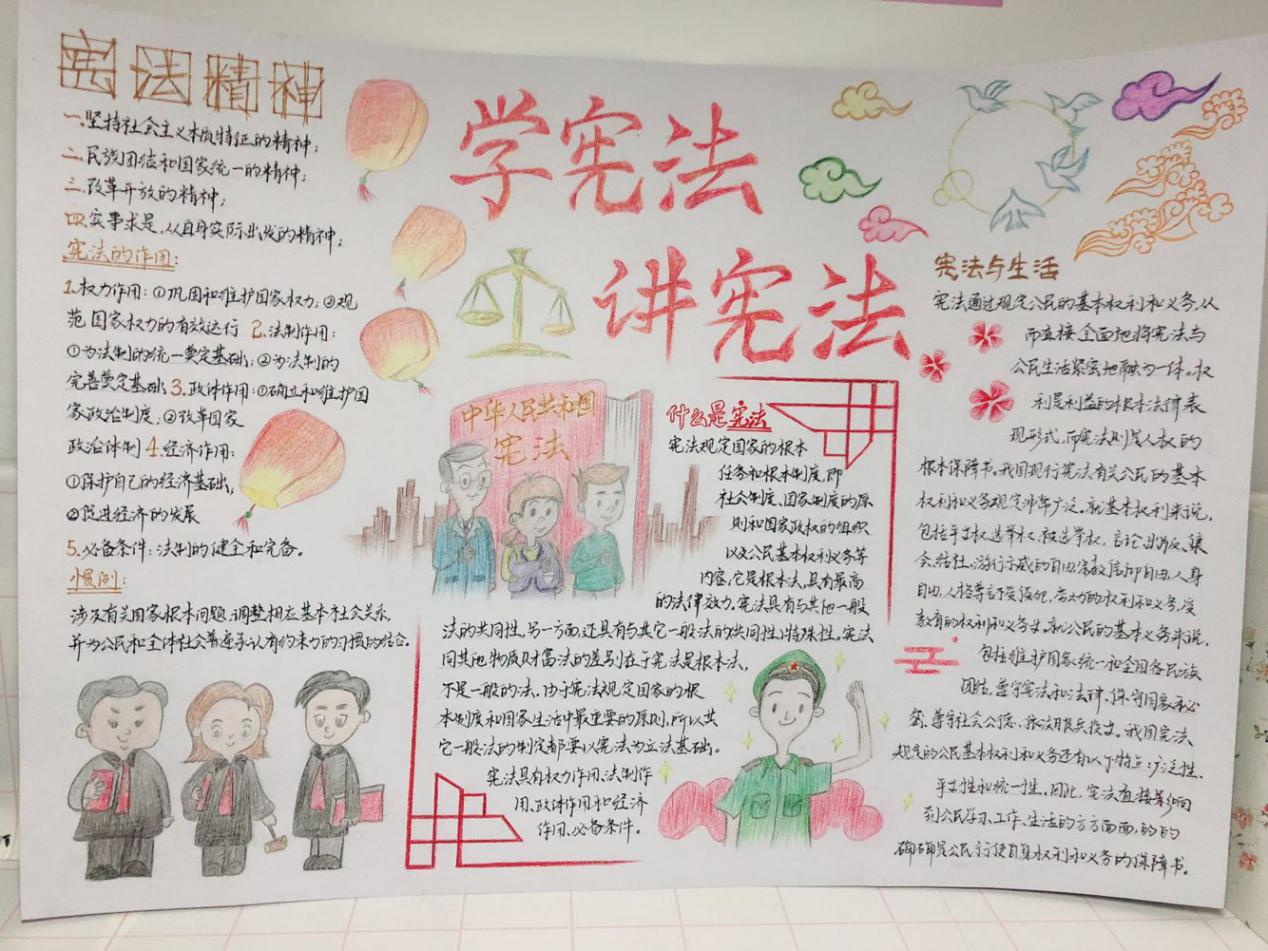 宪法精神
一.坚持社会主义本质特征的精神；
二.民族团结和国家统一的精神；
三.改革开放的精神；
四.实事求是,从自身实际出发的精神；
宪法的作用：
1.权力作用：①巩固和维护国家权力；②规
范国家权力的有效运行 2.法制作用：
①为法制的统一奠定基础；②为法制的
完善奠定基础 3.政体作用：①确立和维护国
家政治制度；②改革国家
政治体制 4.经济作用：
①保护自己的经济基础，
②促进经济的发展
5.必备条件：法制的健全和完备。
惯例：
涉及有关国家根本问题,调整相应基本社会关系,
并为公民和全体社会普遍承认有约束力的习惯的结合.
学宪法
讲宪法
中华人民共和国
宪法
什么是宪法
宪法规定国家的根本
任务和根本制度,即
社会制度、国家制度的原
则和国家政权的组织
以及公民基本权利义务等
内容,它是根本法,具有最高
的法律效力.宪法具有与其他一般
法的共同性,另一方面,还具有与其它一般法的共同性以特殊性.宪法
同其他物质财富法的差别在于宪法是根本法,
不是一般的法,由于宪法规定国家的根
本制度和国家生活中最重要的原则,所以其
它一般法的制定都要以宪法为立法基础。
宪法具有权力作用、法制作
用、政体作用和经济
作用、必备条件。
宪法与生活
宪法通过规定公民的基本权利和义务,从
而直接全面地将宪法与
公民生活紧密地融为一体.权
利是利益的根本法律表
现形式,而宪法则是人权的
根本保障书.我国现行宪法有关公民的基本
权利和义务规定非常广泛.就基本权利来说,
包括平等权、选举权、被选举权、言论、出版、集
会、结社、游行示威的自由、宗教信仰自由,人身
自由,人格尊严不受侵犯,劳动的权利和义务,受
教育的权利和义务.就公民的基本义务来说,
包括维护国家统一和全国各民族
团结,遵守宪法和法律,保守国家秘
密,尊重社会公德、依法服兵役.我国宪法
规定的公民基本权利和义务还有以下特点:广泛性、
平等性和统一性.因此,宪法直接影响
到公民学习、工作、生活的方方面面,的的
确确是公民行使自身权利和义务的保障书.